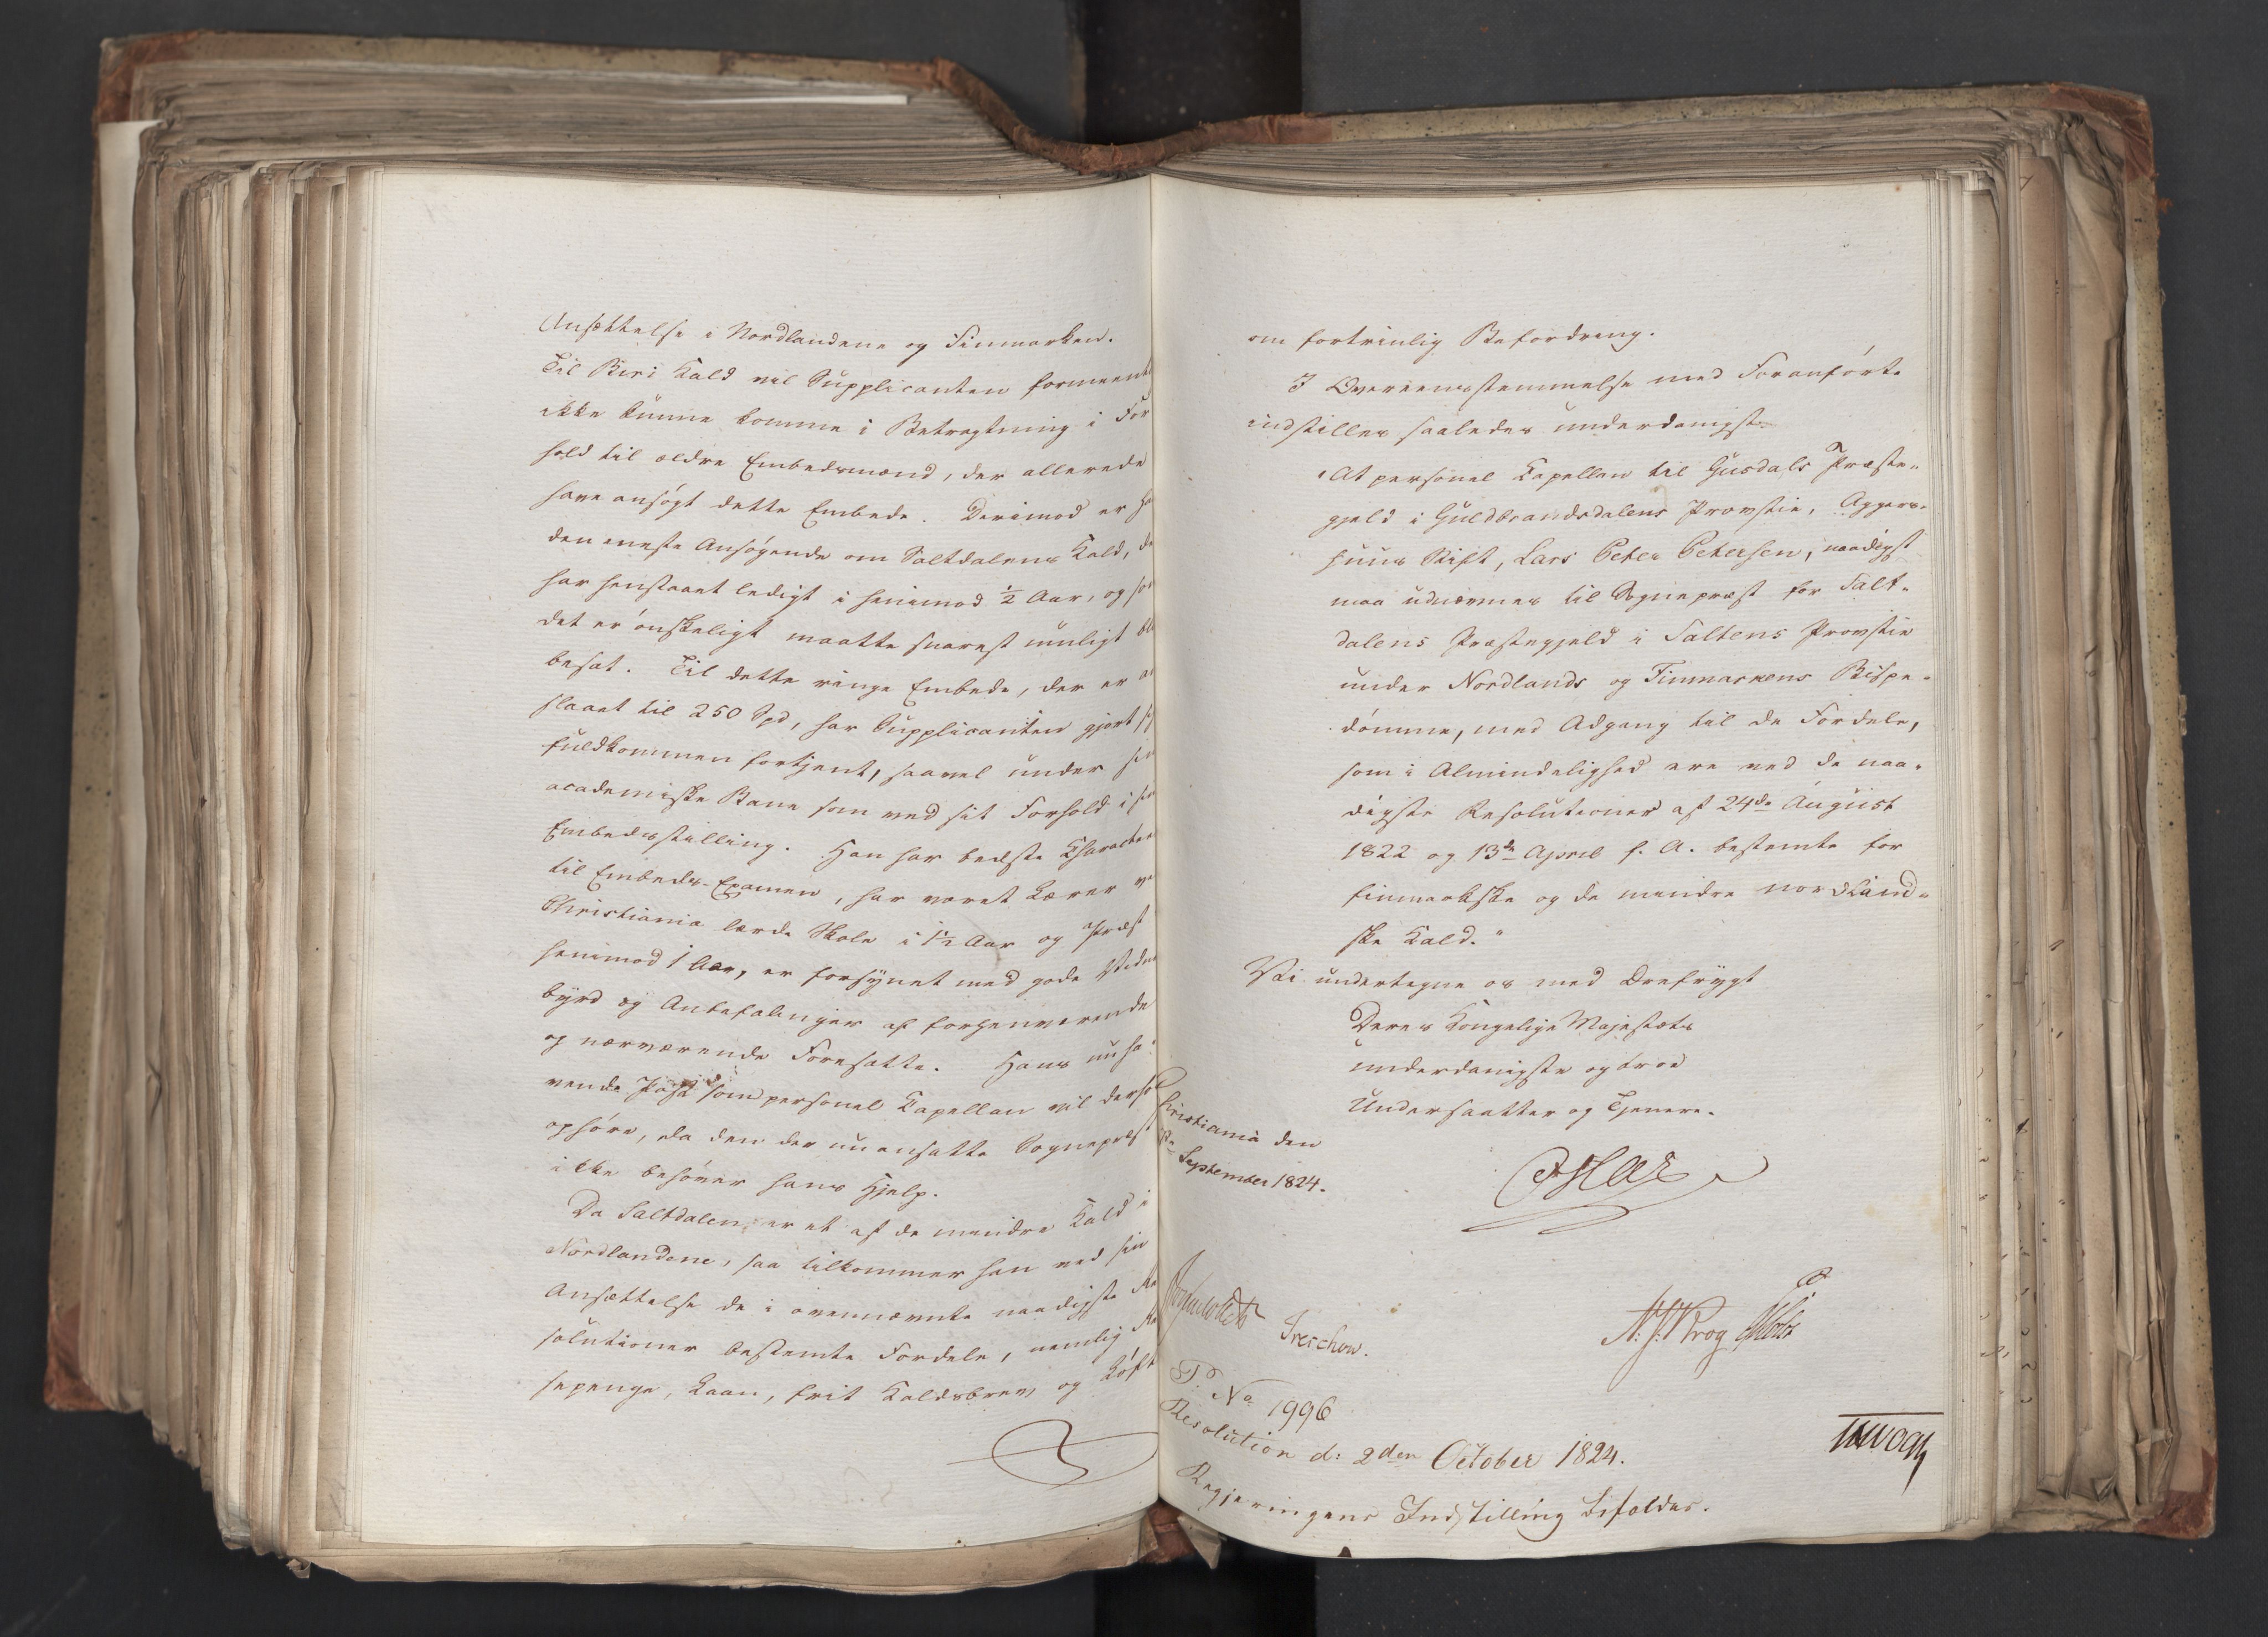 Ansættelse i Nordlandene og Finmarken.
Til Biri Kald vil Supplicanten formeentl
ikke kunne komme i Betragtning i For
hold til ældre Embedsmænd, der allerede
have ansøgt dette Embede. Derimod er ha
den eneste Ansøgende om Saltdalens Kald, de
har henstaaet ledigt i henimod ½ Aar, og som
det er ønskeligt maatte snarest muligt bli
besat. Til dette ringe Embede, der er an
slaaet til 250 Spd, har Supplicanten gjort sig
fuldkommen fortjent, saavel under sin
academiske Bane som ved sit Forhold i sin
Embedsstilling. Han har bedste Character
til Embeds-Examen, har været Lærer ve
Christiania lærde Skole i 1½ Aar og Præst
henimod 1 Aar, er forsynet med gode Vidnes
byrd og Anbefalinger af forhenværende
og nærværende Foresatte. Hans nu ha
vende Post som personel Capellan vil derhos
ophøre, da den der nu ansatte Sognepræst
ikke behøver hans Hjelp.
Da Saltdalen er et af de mindre Kald i
Nordlandene, saa tilkommer han ved sin
Ansættelse de i ovennævnte naadigste Re
solutioner bestemte Fordele, nemlig Re
sepenge, Laan, frit Kaldsbrev og Løft
om fortrinlig Befordring.
I Overeensstemmelse med Foranførte
indstilles saaledes underdanigst
"At personel Capellan til Gusdals Præste-
gjeld i Guldbrandsdalens Provstie, Aggers-
huus Stift, Lars Peter Petersen, naadigst
maa udnævnes til Sognepræst for Salt-
dalens Præstegjeld i Saltens Provstie
under Nordlands og Finmarkens Bispe-
dømme, med Adgang til de Fordele,
som i Almindelighed ere ved de naa-
digste Resolutioner af 24de August
1822 og 13de April f. A. bestemte for
finmarkske og de mindre nordland-
ske Kald."
Vi undertegne os med Ærefrygt
Deres Kongelige Majestæts
underdanigste og troe
Undersaatter og Tjenere.
Christiania den
September 1824.
Oscar
Treschow.
N. J. Krog
P. No 1996
Resolution d: 2den October 1824.
Regjeringens Indstilling bifaldes.